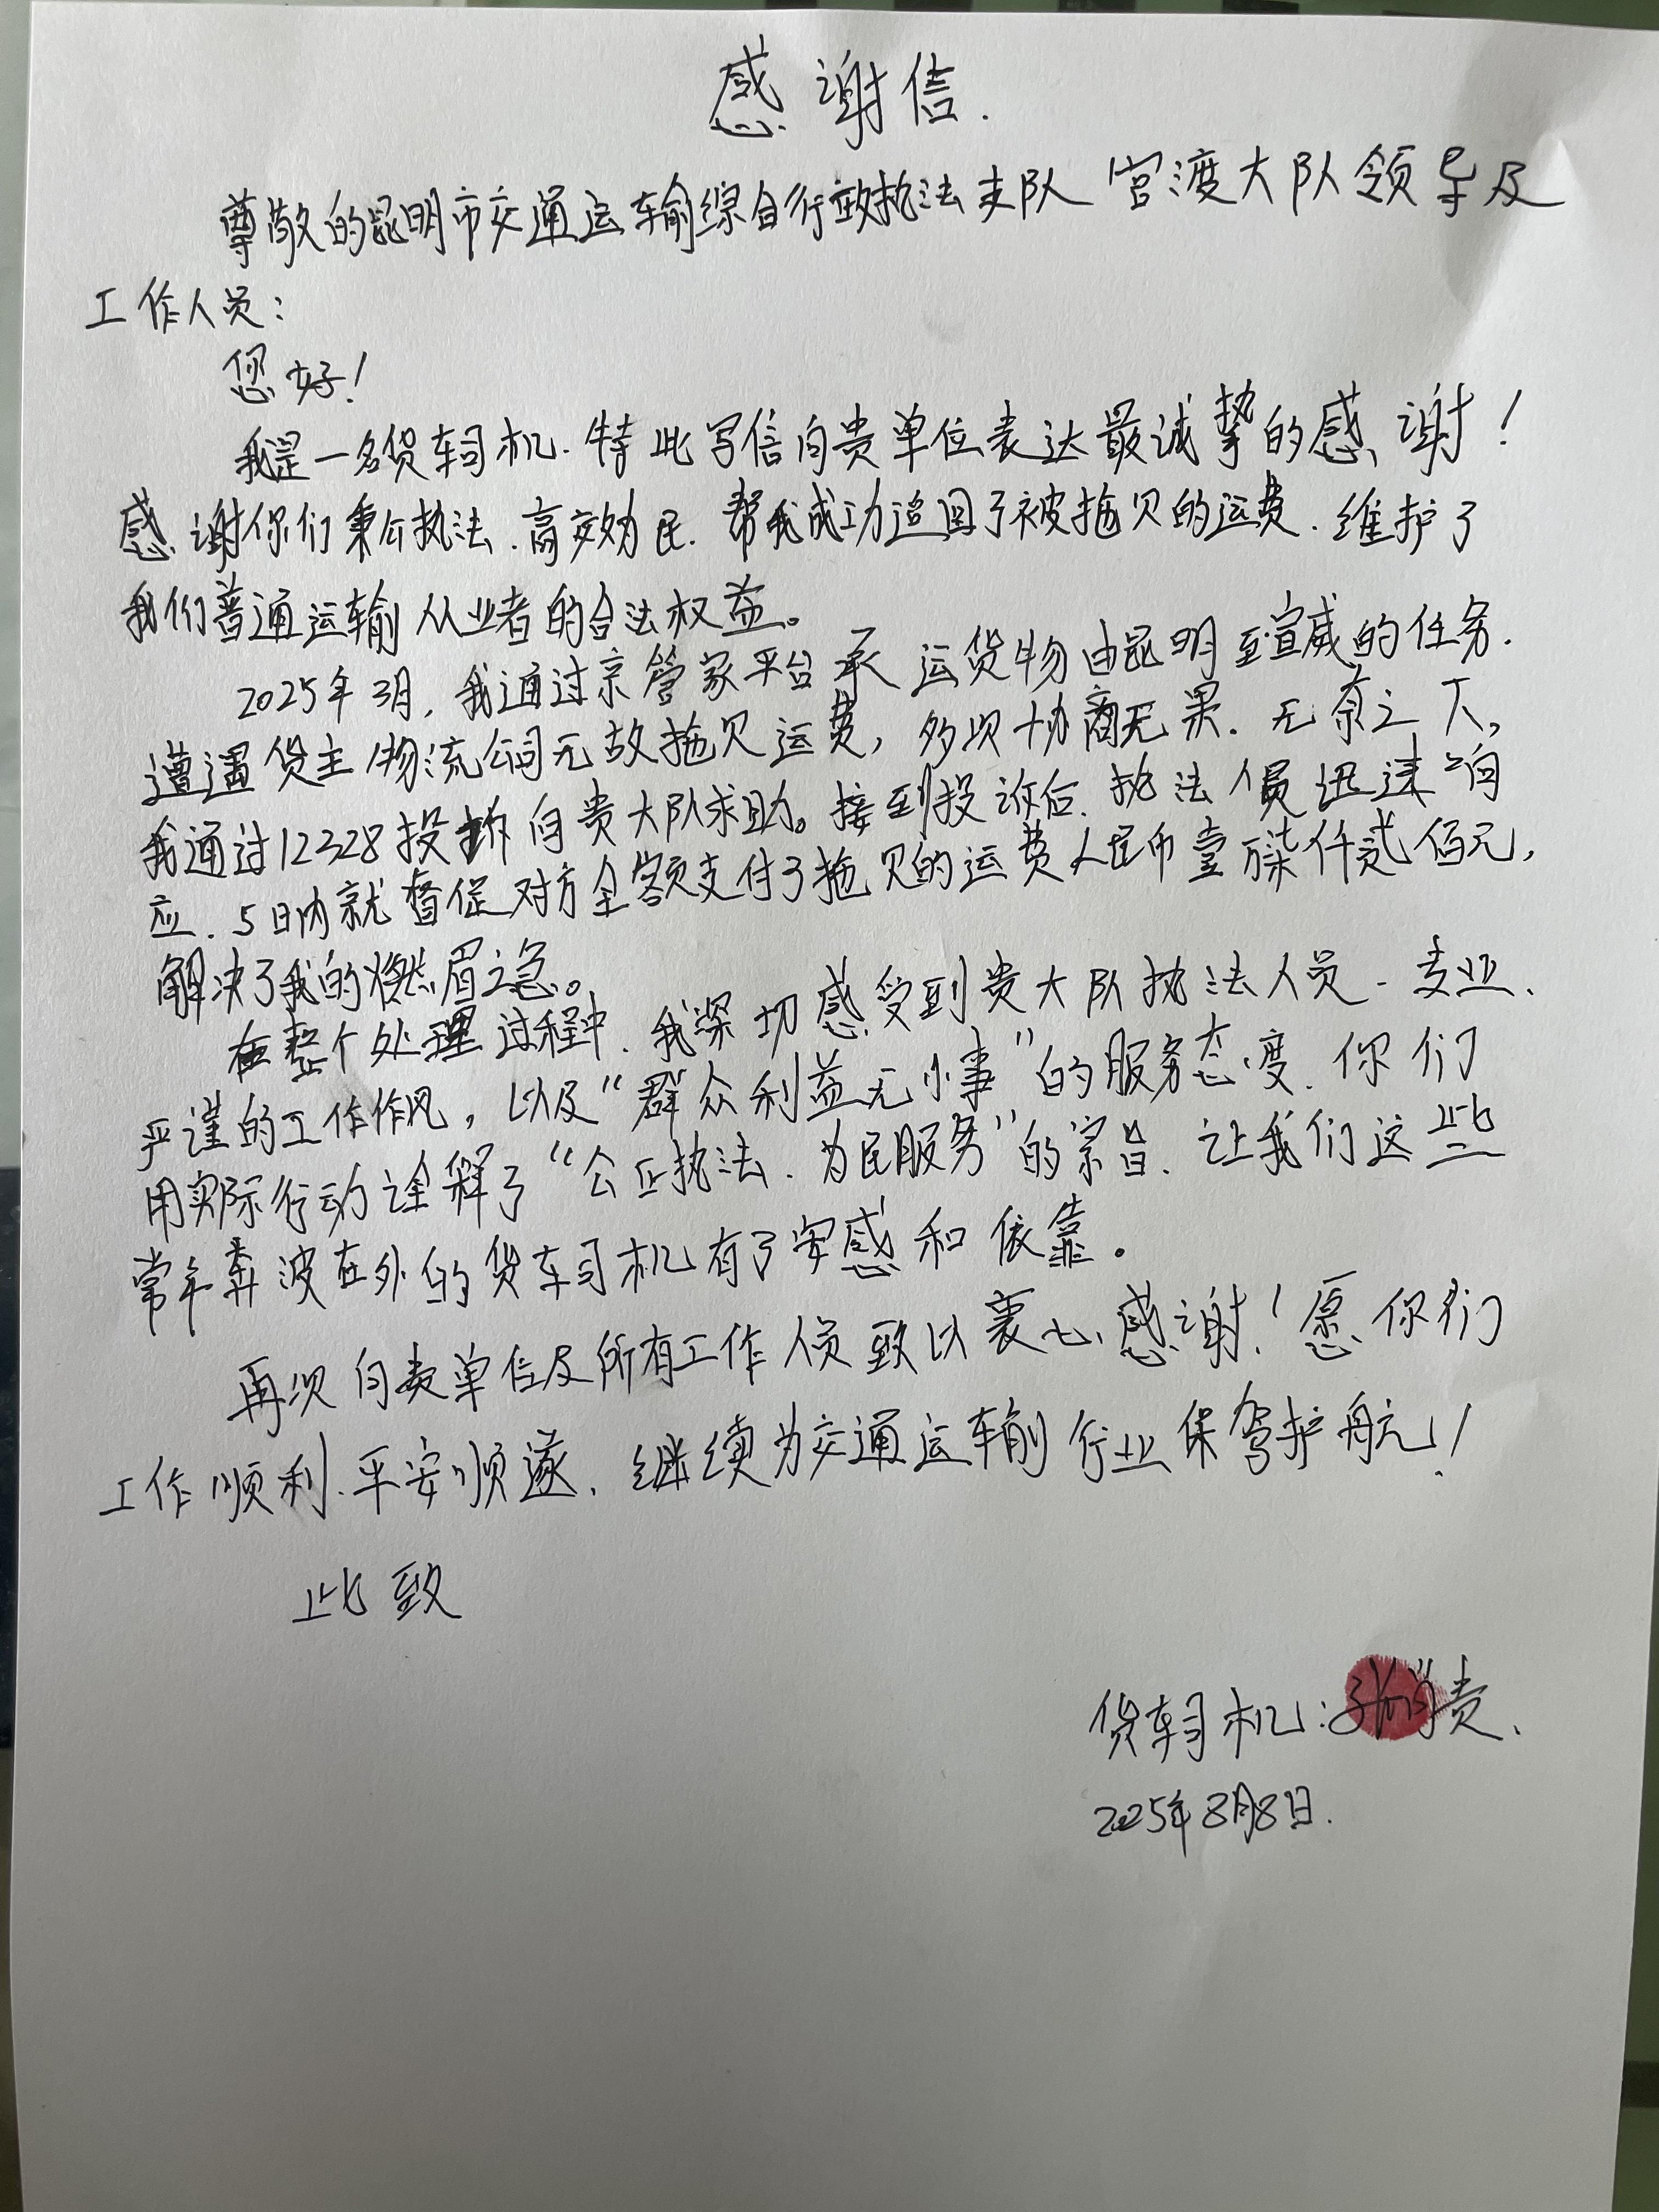 感谢信.
尊敬的昆明市交通运输综合行政执法支队官渡大队领导及
工作人员：
您好！
我是一名货车司机.特此写信向贵单位表达最诚挚的感谢！
感谢你们秉公执法.高效为民.帮我成功追回了被拖欠的运费.维护了
我们普通运输从业者的合法权益。
2025年3月,我通过京管家平台承运货物由昆明至宣威的任务.
遭遇货主物流公司无故拖欠运费,多次协商无果.无奈之下,
我通过12328投诉向贵大队求助。接到投诉后.执法人员迅速响
应.5日内就督促对方全额支付了拖欠的运费人民币壹万柒仟贰佰元,
解决了我的燃眉之急。
在整个处理过程中.我深切感受到贵大队执法人员-专业、
严谨的工作作风,以及“群众利益无小事”的服务态度.你们
用实际行动诠释了“公正执法.为民服务”的宗旨.让我们这些
常年奔波在外的货车司机有了安感和依靠。
再次向贵单位及所有工作人员致以衷心感谢！愿你们
工作顺利.平安顺遂.继续为交通运输行业保驾护航！
此致
货车司机:张贵.
2025年8月8日.